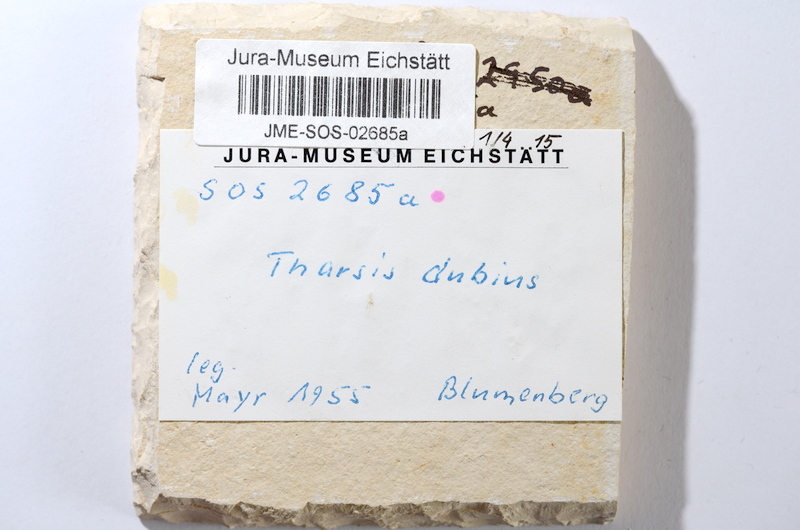 Jura-Museum Eichstätt
JME-SOS-02685a
a
1/4 . 15
JURA-MUSEUM EICHSTÄTT
SOS 2685a
Tharsis dubius
leg.
Mayr 1955 Blumenberg